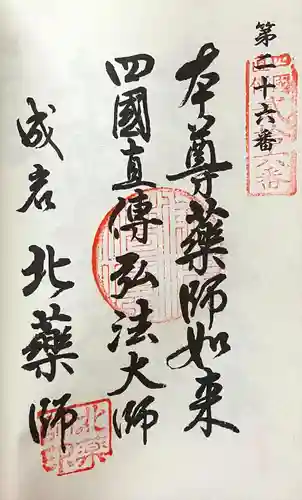 第二十六番
本尊薬師如来
四國直傳弘法大師
成岩 北薬師